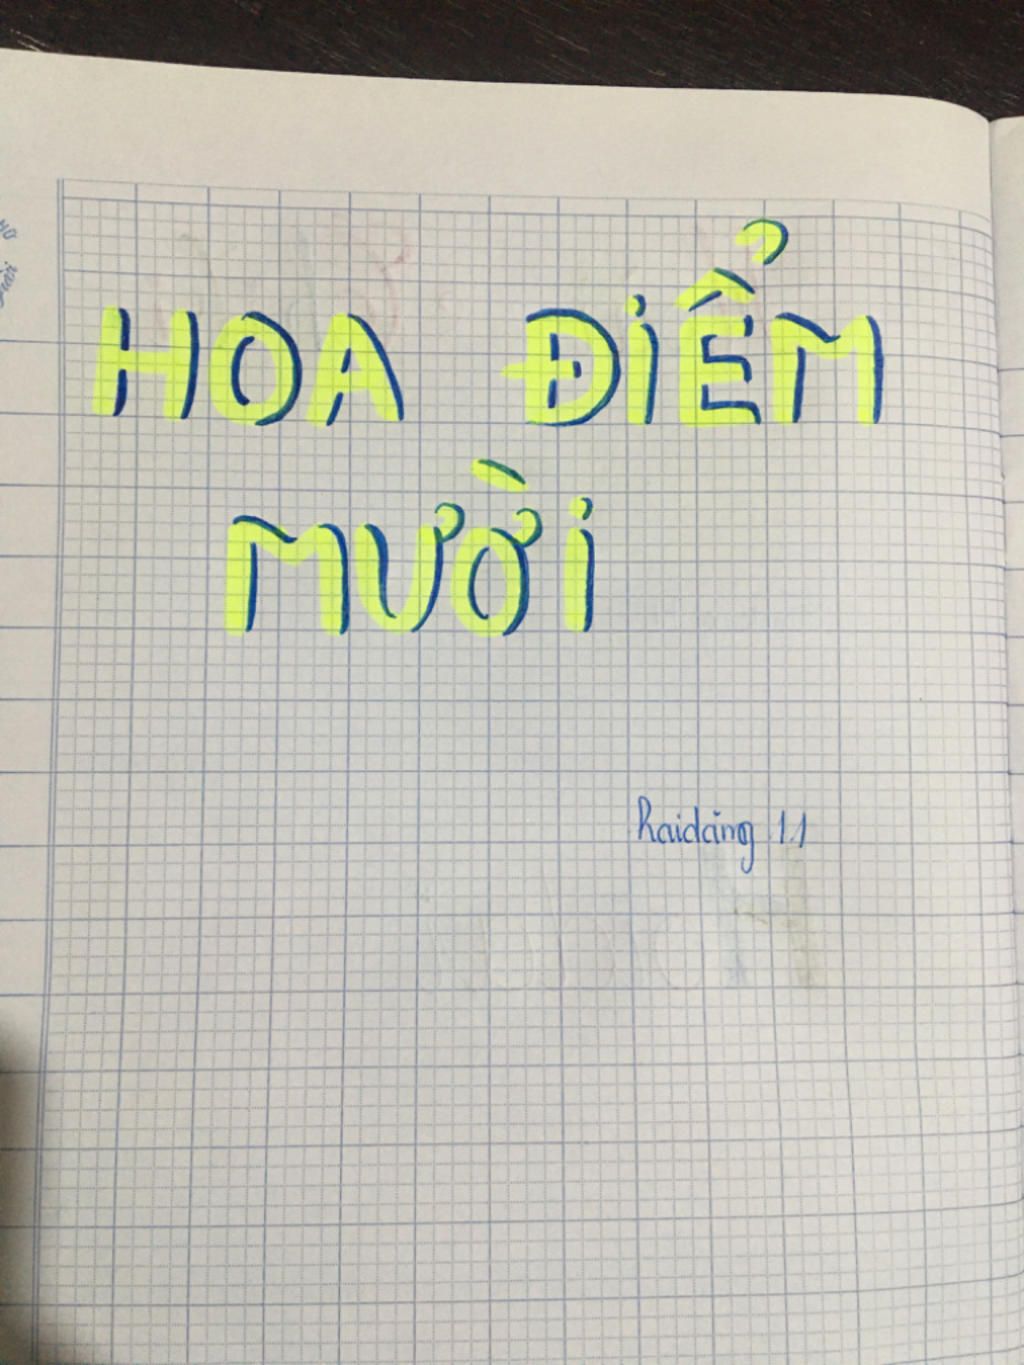 HOA ĐIỂM
MƯỜI
Raidaing 11